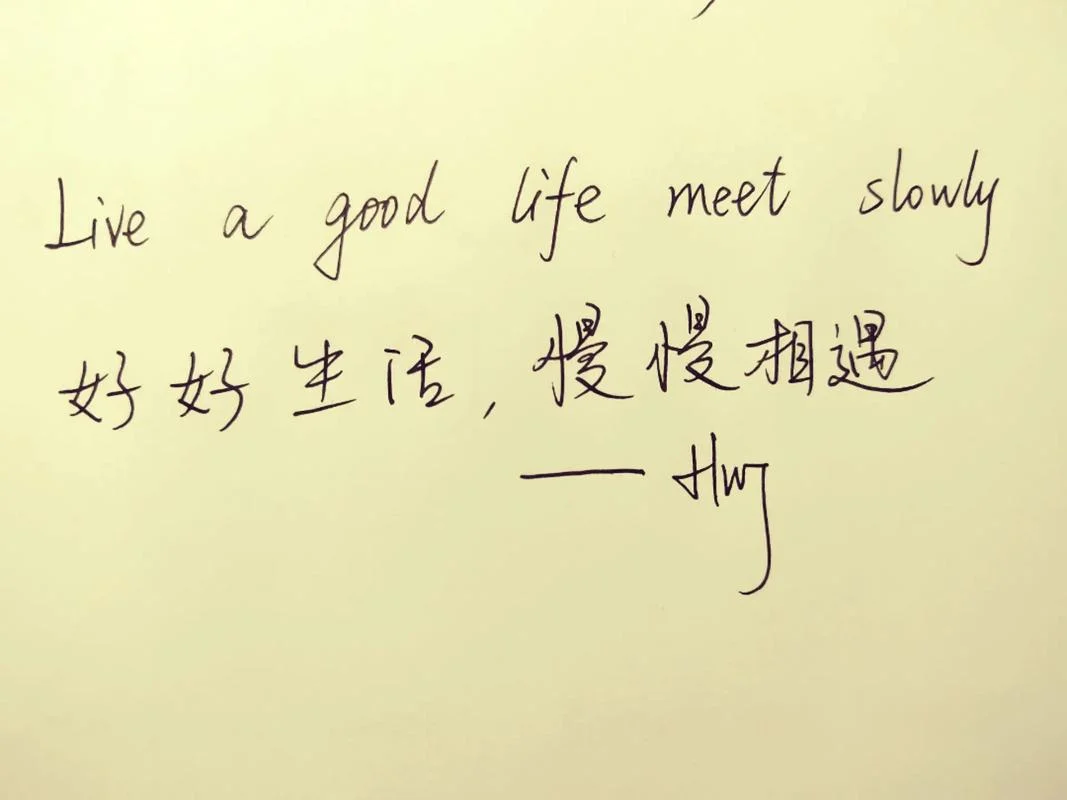 Live a good life meet slowly
好好生活,慢慢相遇
—— Hwj